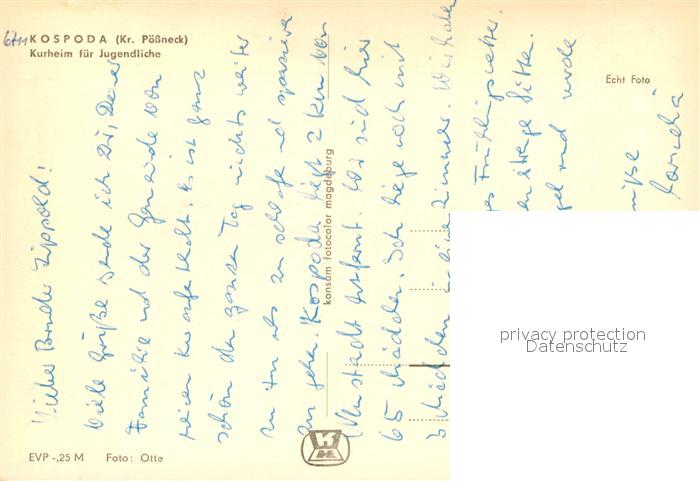 6711
KOSPODA (Kr. Pößneck)
Kurheim für Jugendliche
Echt Foto
Lieber Bruder Lippold!
Viele Grüße sende ich Dir, Deiner
Familie und der Gemeinde von
meinem Kuraufenthalt. Es ist ganz
schön den ganzen Tag nichts weiter
zu tun als zu schlafen und spazieren
zu gehen. Kospoda liegt 2 km von
Neustadt entfernt. Wir sind hier
65 Mädchen. Ich liege noch mit
3 Mädchen in einem Zimmer. Wir haben
Frühlingswetter.
strenge Sitten.
und werde
konsum fotocolor magdeburg
privacy protection
Datenschutz
EVP -,25 M Foto: Otte